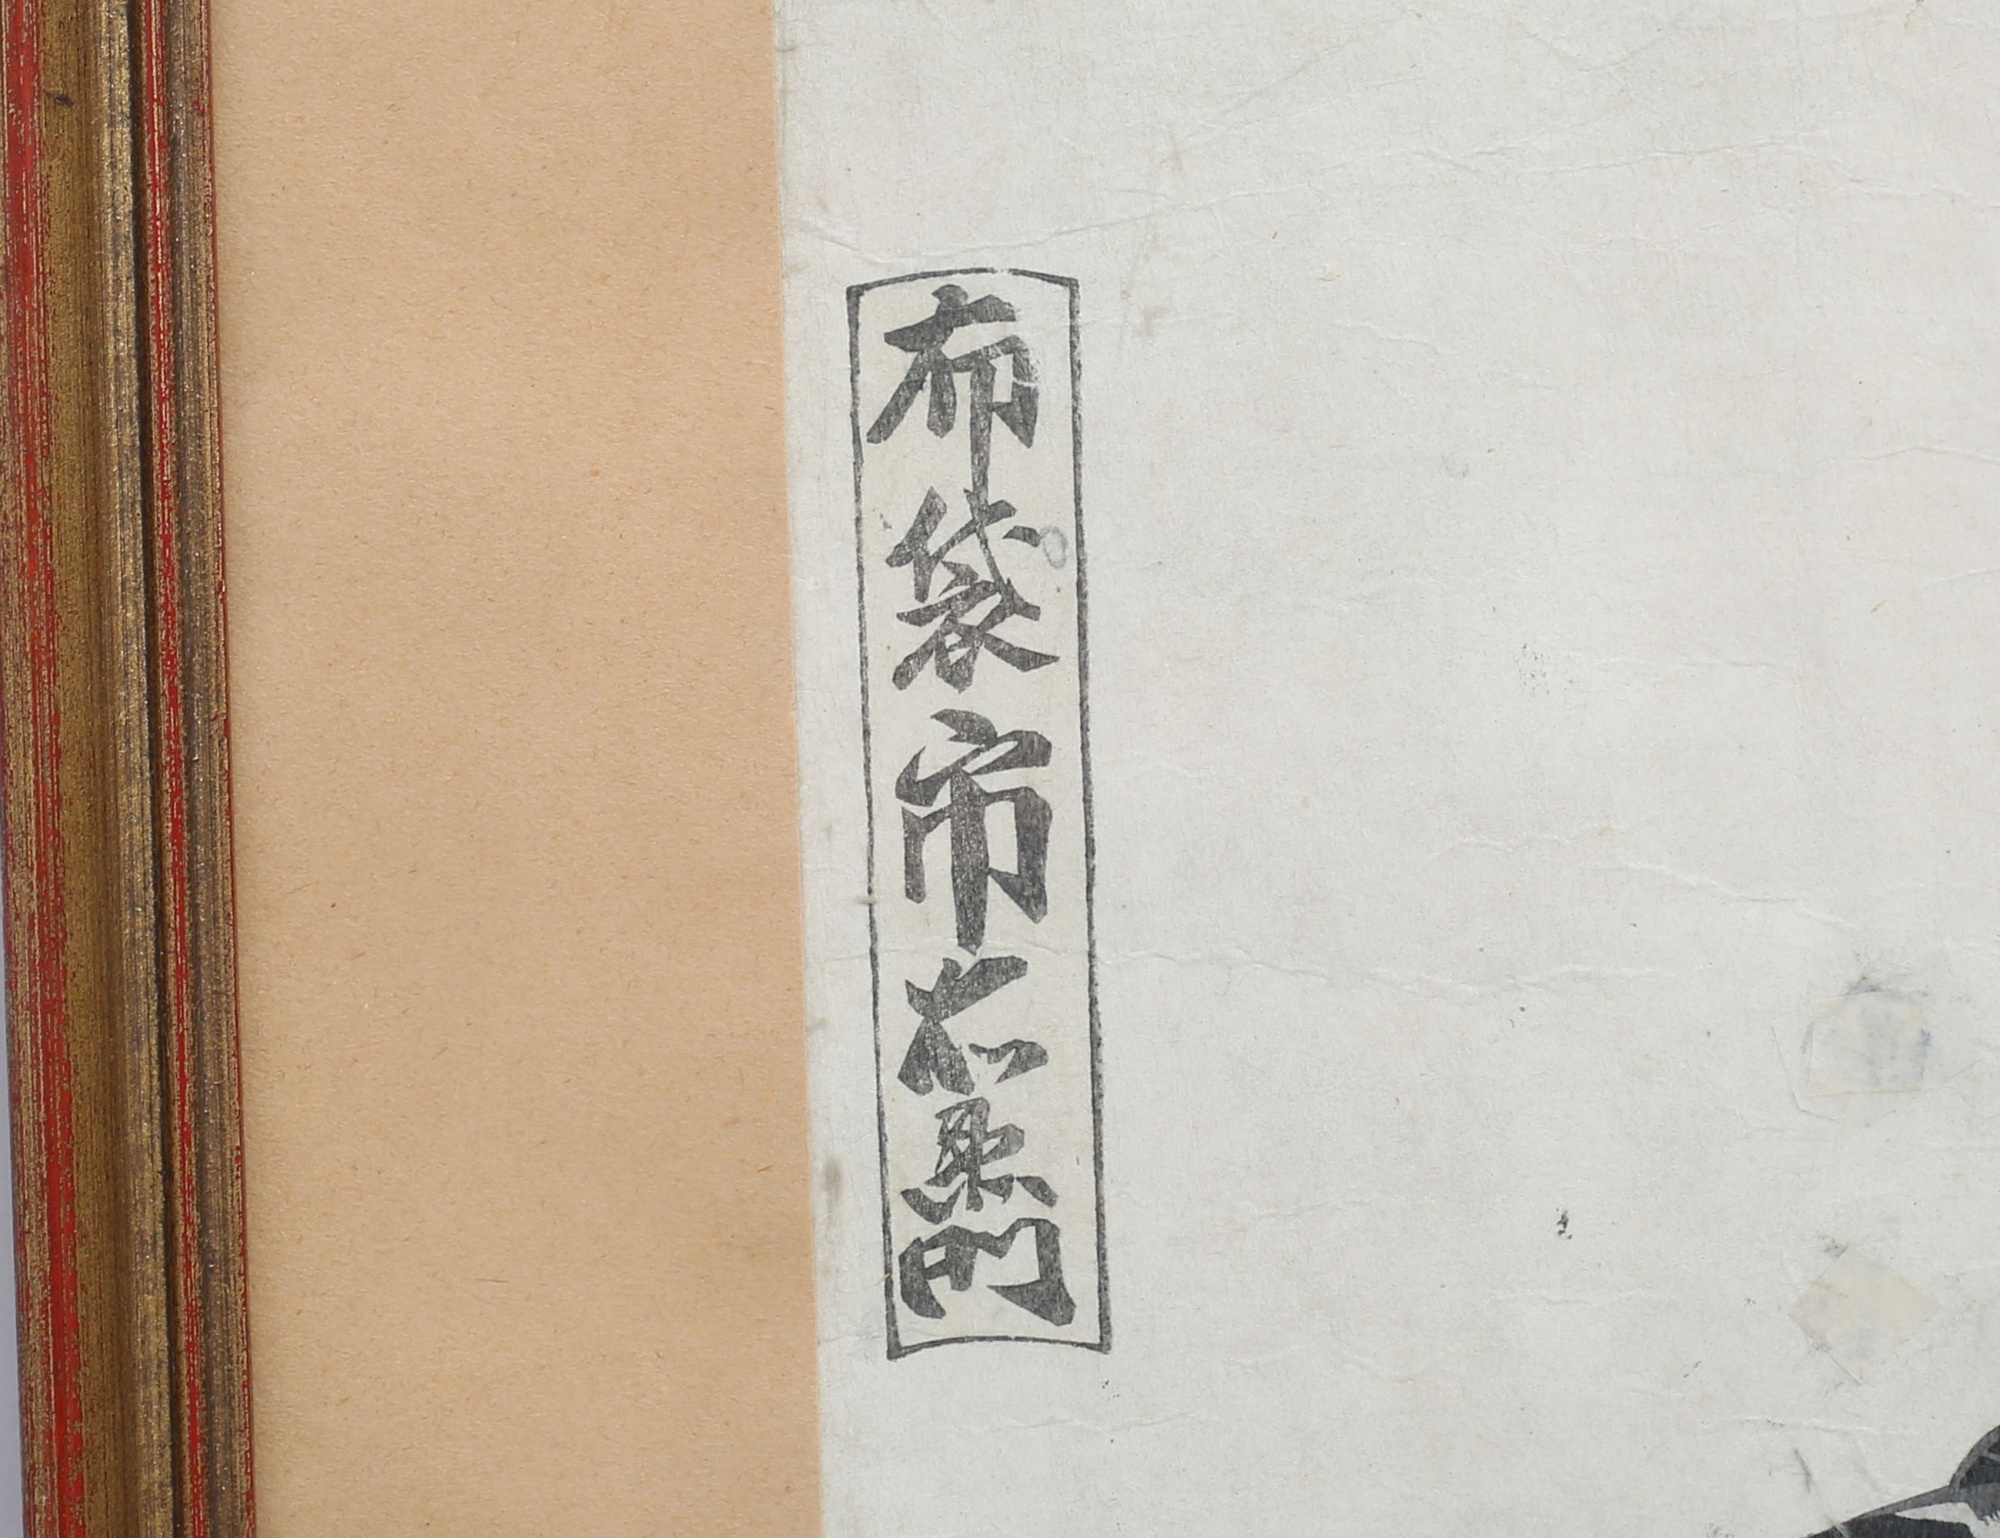 布袋市右衛門